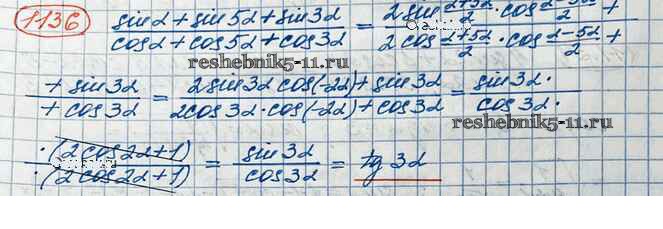 1136 sinα + sin5α + sin3α / cosα + cos5α + cos3α = 2 sin (α+5α)/2 · cos (α-5α)/2 + / 2 cos (α+5α)/2 · cos (α-5α)/2 +
reshebnik5-11.ru
+ sin3α / + cos3α = 2 sin3α cos(-2α) + sin3α / 2cos3α · cos(-2α) + cos3α = sin3α · / cos3α ·
reshebnik5-11.ru
· (2cos2α+1) / · (2cos2α+1) = sin3α / cos3α = tg 3α